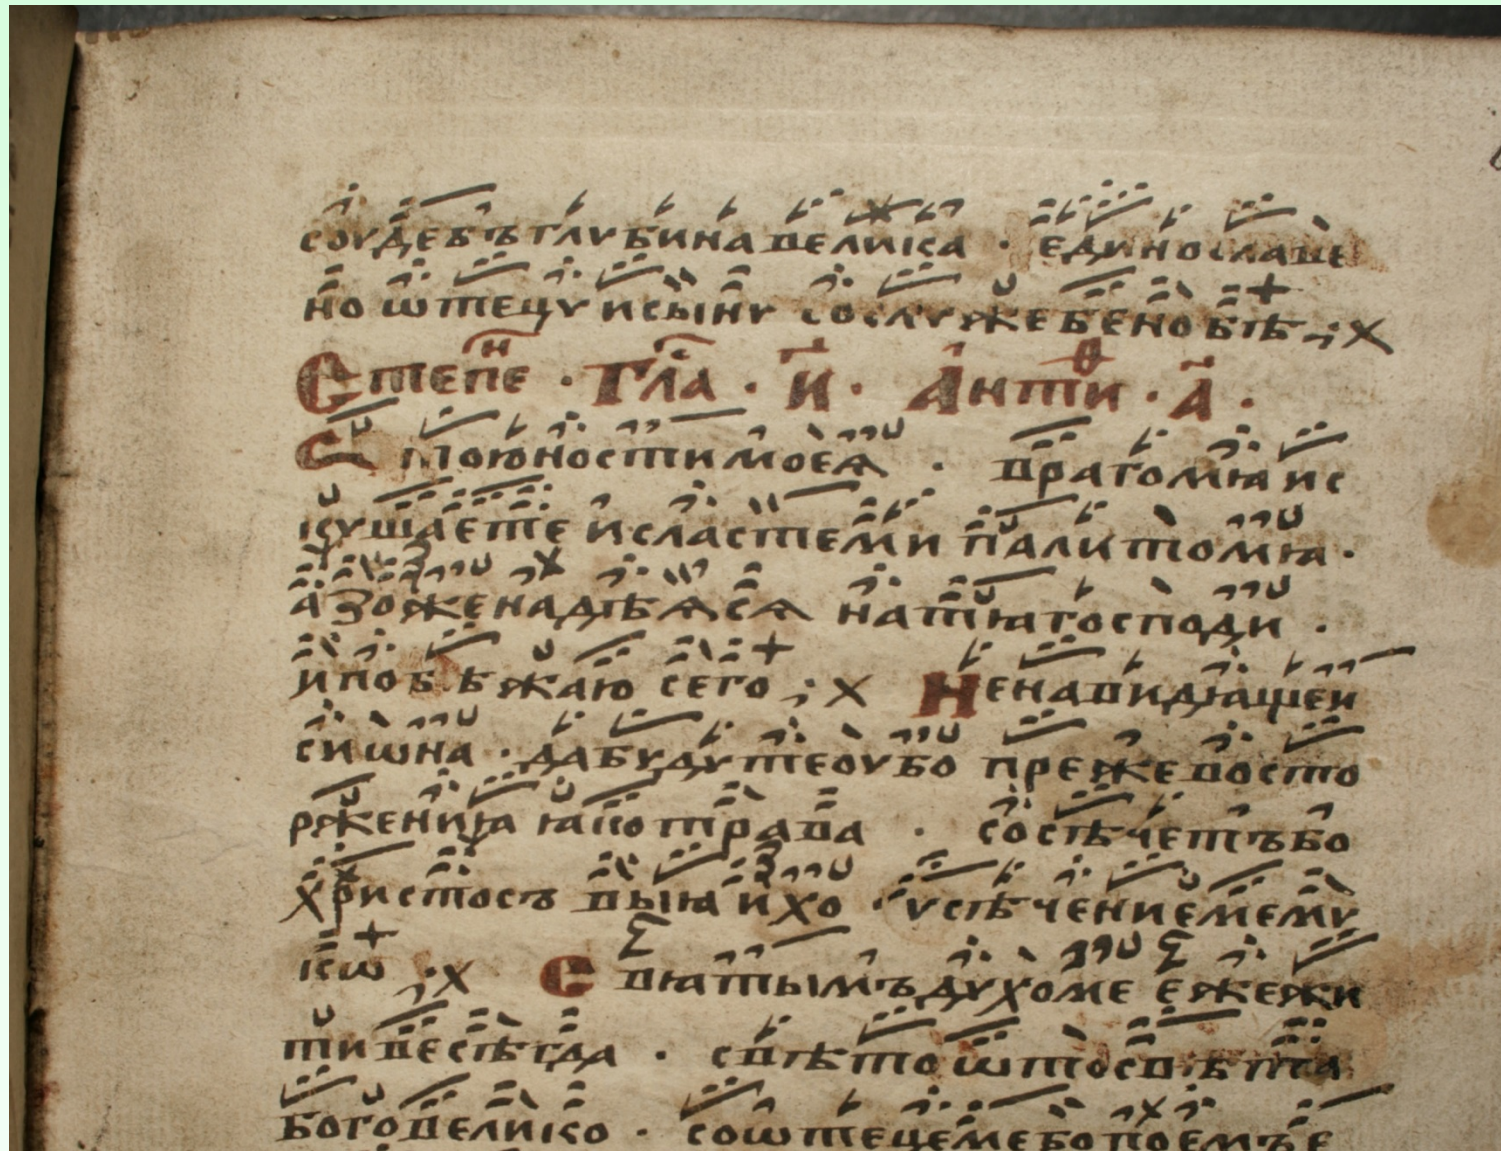 соудебъ глубина велика · единославе
но ѿтецу и сыну сослужебено бѣ ; х
Степен · Гла · и · Антифи · а ·
Ѿ м ою ности моея · врагомꙗ ис
кушаете и сластеми палитомꙗ ·
азоже надѣѧся на тꙗ господи ·
и побѣжаю сего ; х Ненавидꙗщеи
сиѡна · да будуте оубо преже восто
ржениꙗ ꙗко трава · сосѣчетъ бо
христосъ выꙗ ихо · усѣчениемему
кѡ · х Свꙗтымъ духоме ежежи
ти весѣгда · свѣто ѿто свѣта
бого велико · со ѿтецемебо поемъ е